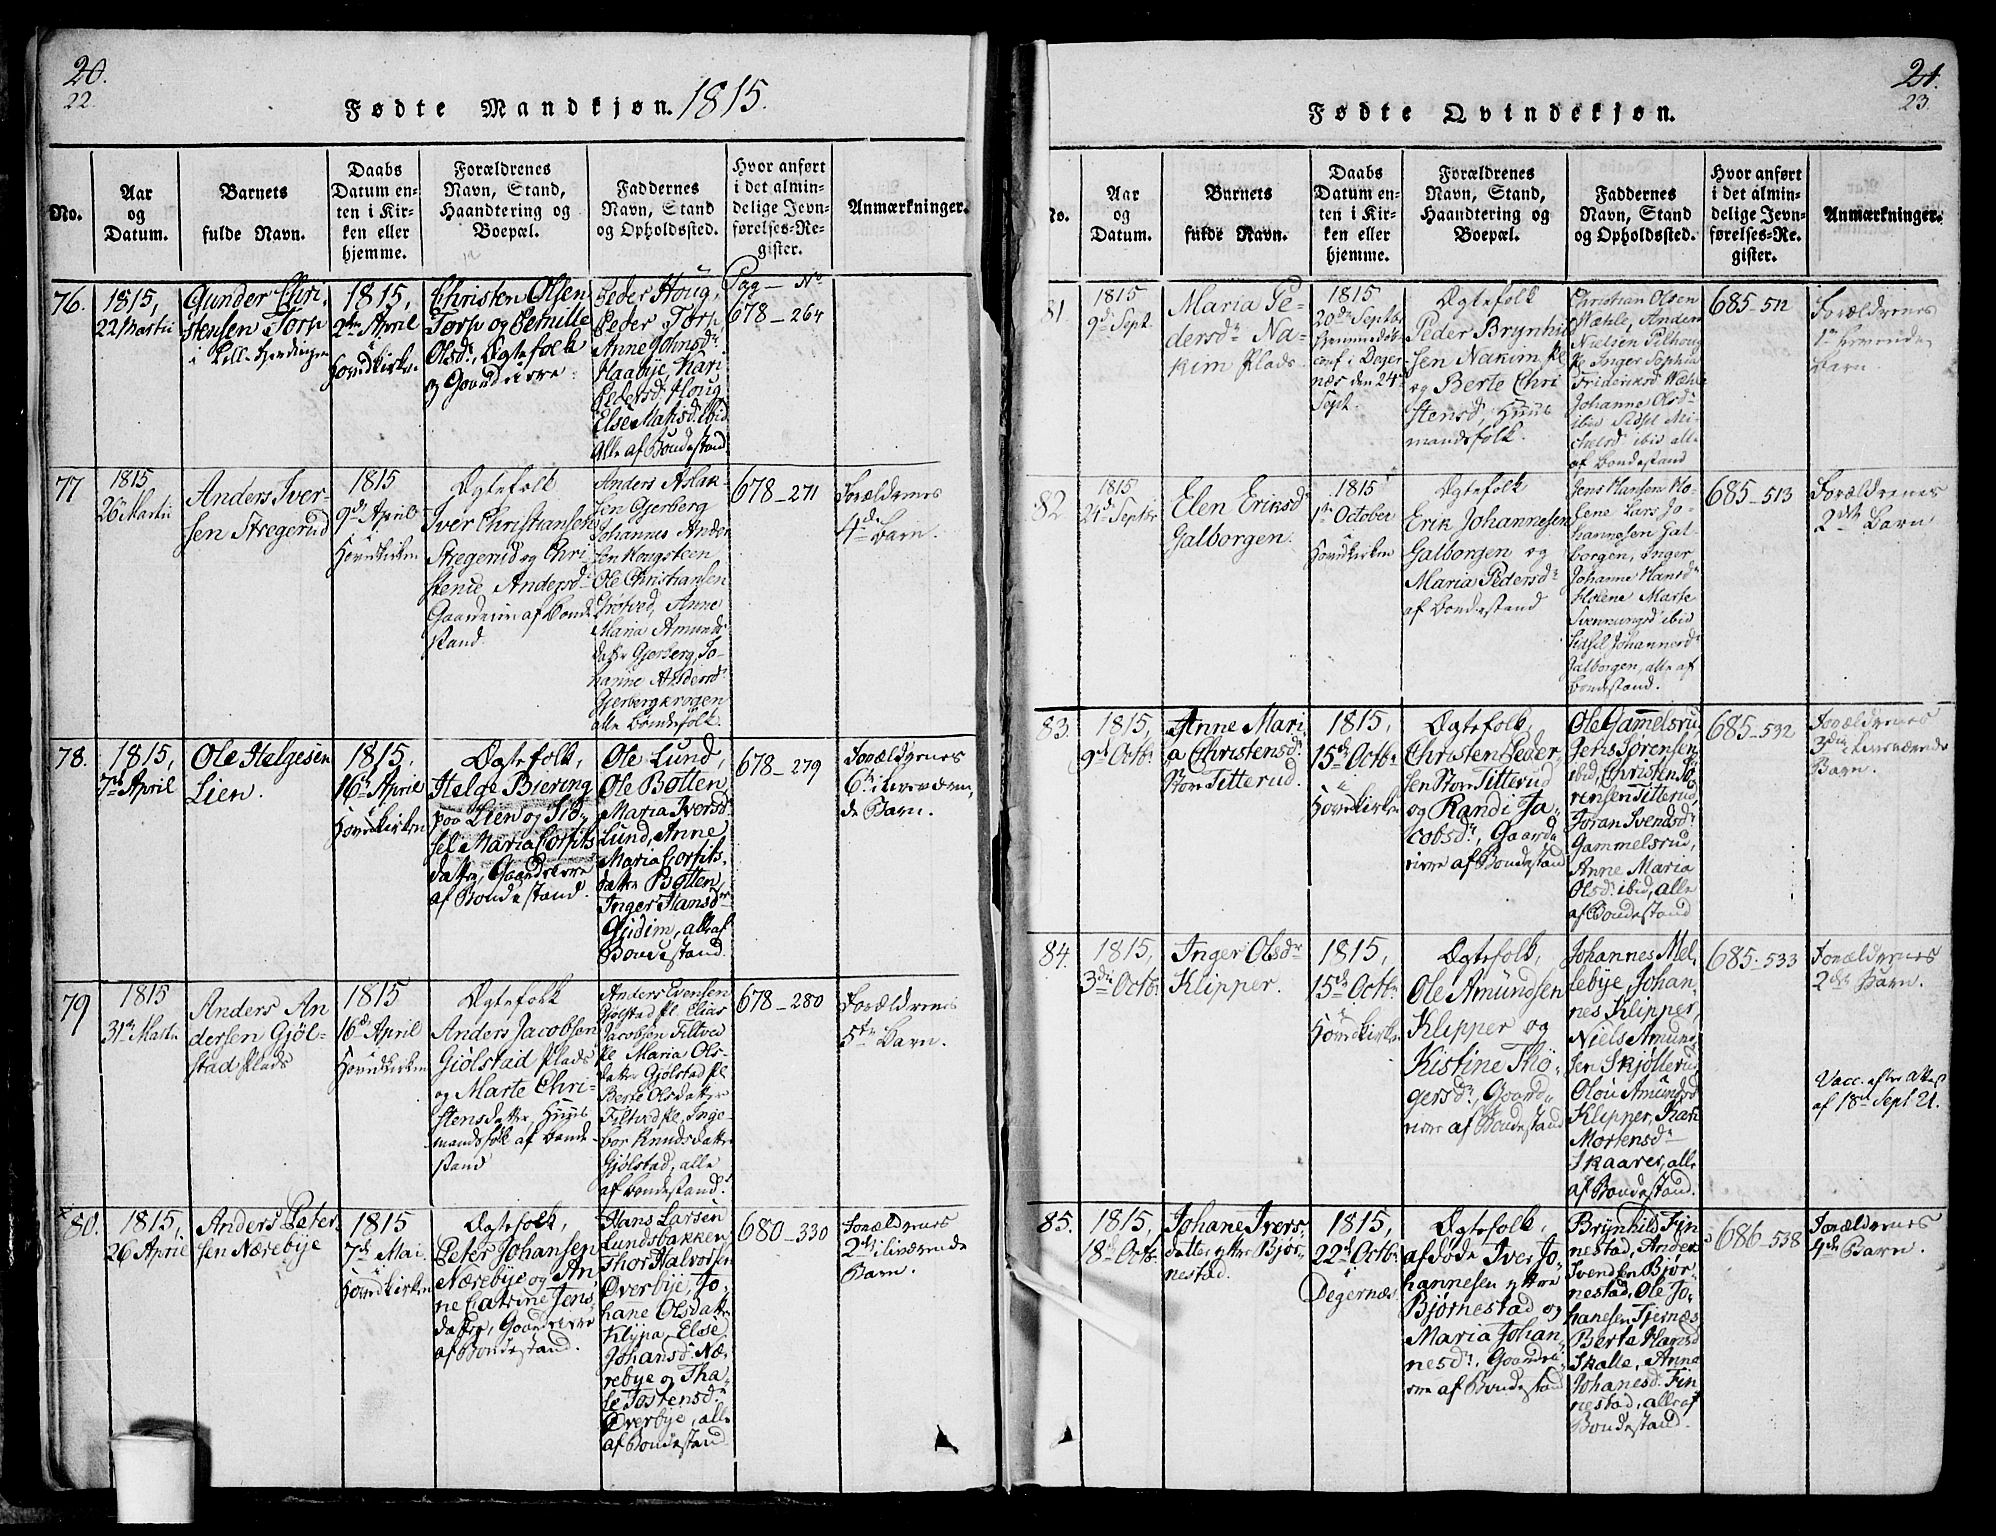 20.
22.
Fødte Mandkjøn. 1815.
No.
Aar
og
Datum.
Barnets
fulde Navn.
Daabs
Datum en-
ten i Kir-
ken eller
hjemme.
Forældrenes
Navn, Stand,
Haandtering og
Boepæl.
Faddernes
Navn, Stand
og Opholdssted.
Hvor anført
i det almin-
delige Jevn-
førelses-Re-
gister.
Anmærkninger.
76.
1815,
22 Martii
Gunder Chri-
stensen Torp
i Lille
1815,
2den April
i
Hovedkirke.
Christen Olsen
Torp og Pernille
Olsdr, Ægtefolk
og Gaardeiere
Peder Houg,
Peder Torp,
Anne Johnsdr
Haabye, Kari
Pedersdr Houg
Else Matisdr ibid
Alle af Bondestand
Pag — No
678 — 264
77
1815
26 Martii
Anders Iver-
sen Stregerud
1815
9de April
i
Hovedkirken
Ægtefolk
Iver Christiansen
Stregerud og Chri-
stence Andersdr
Gaardeiere af Bonde
stand.
Anders Aslak-
sen Gjerberg
Johannes Ander
sen Kongsteen
Ole Christiansen
Grøtved, Anne
Maria Amunds
datter Gjerberg, Jo-
hanne Andersdr
Gjerbergkrogen
alle bondefolk.
678 — 271
Forældrenes
4de Barn.
78.
1815,
7de April
Ole Helgesen
Lien.
1815,
16de April
i
Hovedkirken
Ægtefolk,
Helge Biering
paa Lien og Sid-
sel Maria Corfits
datter, Gaardeiere
af Bondestand.
Ole Lund,
Ole Botten,
Maria Iversdr
Lund, Anne
Maria Corfits,
datter Botten,
Inger Hansdr
Gudim, alle af
Bondestand.
678 — 279
Forældrenes
6te iliveværen,
de Barn.
79
1815
31te Martii
Anders An
dersen Gjøl-
stad Plads
1815
16de April
i
Hovedkirken
Ægtefolk
Anders Jacobsen
Gjølstad Plads
og Marte Chri-
stensdatter, Huus
mandsfolk af bonde-
stand
Anders Evensen
Gjølstad Pl Elias
Jacobsen Filtved
Pl Maria Ols-
datter Gjølstad Pl
Berte Olsdatter
Filtved Pl, Inge-
bor Knudsdatter
Gjølstad, alle
af bondestand.
678 — 280
Forældrenes
5te Barn.
80.
1815,
26 April
Anders Peter
sen Nærebye
1815
7de Mai
i
Hovedkirken
Ægtefolk,
Peter Johansen
Nærebye og An
ne Catrine Jens,
datter, Gaardeiere
af Bondestand.
Hans Larsen
Lundsbakken
Thor Halvorsen
Overbye, Jo-
hane Olsdatter
Klypa, Else
Johansdr Næ-
rebye og Tha-
le Tostensdr
Overbye, alle
af Bondestand.
680 — 330
Forældrenes
2det ilivværende
Barn.
21.
23.
Fødte Qvindekjøn.
No.
Aar
og
Datum.
Barnets
fulde Navn.
Daabs
Datum en-
ten i Kir-
ken eller
hjemme.
Forældrenes
Navn, Stand,
Haandtering og
Boepæl.
Faddernes
Navn, Stand
og Opholdssted.
Hvor anført
i det almin-
delige Jevn-
førelses-Re-
gister.
Anmærkninger.
81.
1815
9de Septr
Maria Pe-
dersdr Na-
kim Plads.
1815
20de Septbr
hjemmedøbt
conf i Deger-
næs den 24de
Sept.
Ægtefolk
Peder Brynhil
sen Nakim Pl
og Berte Chri
stensdr, Huus
mandsfolk.
Christian Olsen
Wæhle, Anders
Nielsen Pilhoug
Pl Inger Sophia
Frideriksdr Wæhle
Johanne Olsdr
ibid Sidsel Mi-
chelsdr ibid alle
af bondestand
685 — 512
Forældrenes
1te levende
Barn.
82
1815
24de Septbr
Elen Eriksdr
Galborgen.
1815
1te October
i
Hovedkirken
Ægtefolk
Erik Johannesen
Galborgen og
Maria Pedersdr
af bondestand
Jens Hansen Ho-
lene Lars Jo-
hannesen Gal-
borgen, Inger
Johanne Hansdr
Holene Marte
Svenningsdr ibid
Sidsel Johannesdr
Galborgen, alle af
bondestand.
685 — 513
Forældrenes
2det Barn
83.
1815,
9de Octbr
Anne Mari
a Christensdr
Stor Titterud.
1815,
15de Octbr
i
Hovedkirken
Ægtefolk,
Christen Peder,
sen Stor Titterud
og Randi Ja-
cobsdr, Gaard
eiere af Bondestand
Ole Gammelsrud,
Jens Sørensen
ibid, Christen Sø-
rensen Titterud,
Joran Svendsdr
Gammelsrud,
Anne Maria
Olsdr ibid, alle
af Bondestand
685 — 532
Forældrenes
3die ilivværende
Barn.
84.
1815,
3die Octbr
Inger Olsdr
Klipper.
1815,
15de Octbr
i
Hovedkirken
Ægtefolk,
Ole Amundsen
Klipper og
Kistine Thø-
gersdr, Gaard-
eiere af Bondestand
Johannes Mel-
lebye, Johan-
nes Klipper,
Niels Amund-
sen Skjøllerud
Olou Amundsdr
Klipper, Kari
Mortensdr
Skaarer, alle
af Bondestand.
685 — 533
Forældrenes
2det Barn.
Vacc. efter Attest
af 18de Sept 21.
85.
1815,
18de Octbr
Johane Ivers,
datter yttre Bjør-
nestad.
1815,
22de Octbr
i
Degernæs
Ægtefolk,
afdøde Iver Jo-
hannesen yttre
Bjørnestad og
Maria Johan
nesdr, Gaardei-
ere af Bondestand
Brynhild Fin
nestad, Anders
Svendsen Bjør-
nestad, Ole Jo-
hanesen Tjernæs
Berta Hansdr
Skalle, Anna
Johanesdr Fin
nestad, alle af
Bondestand.
686 — 538
Forældrenes
4de Barn.